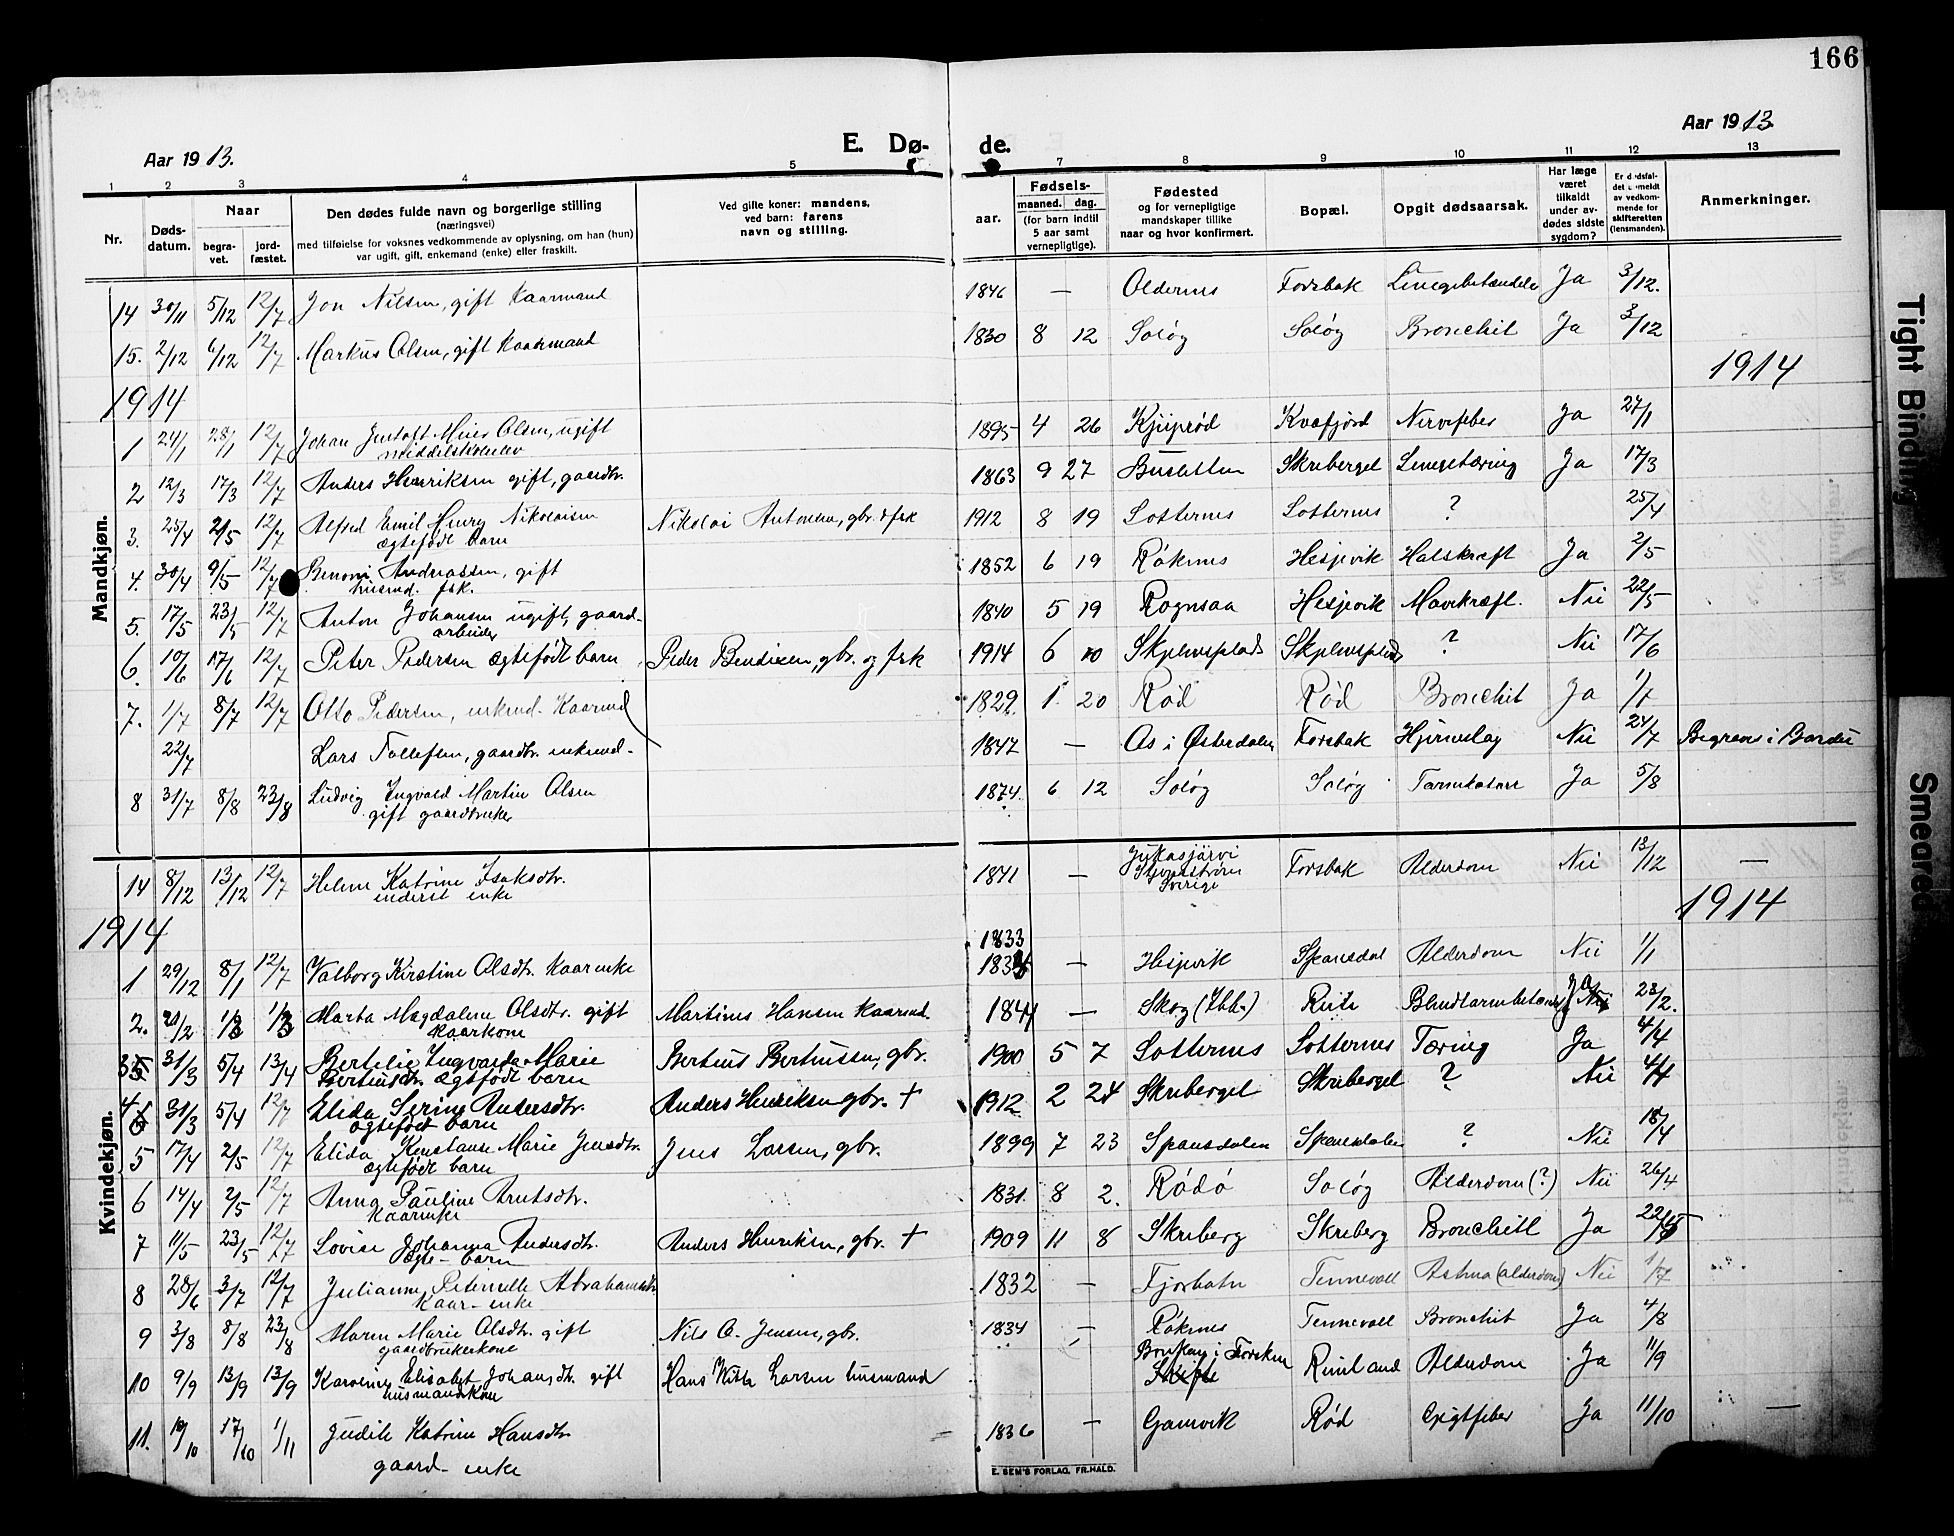 166
Aar 1913.
E. Dø-
de.
Aar 1913.
1 2 3 4 5 7 8 9 10 11 12 13
Nr.
Døds-
datum.
Naar
begra-
vet.
jord-
fæstet.
Den dødes fulde navn og borgerlige stilling
(næringsvei)
med tilføielse for voksnes vedkommende av oplysning, om han (hun)
var ugift, gift, enkemand (enke) eller fraskilt.
Ved gifte koner: mandens,
ved barn: farens
navn og stilling.
aar.
Fødsels-
maaned. dag.
(for barn indtil
5 aar samt
vernepligtige).
Fødested
og for vernepligtige
mandskaper tillike
naar og hvor konfirmert.
Bopæl.
Opgit dødsaarsak.
Har læge
været
tilkaldt
under av-
dødes sidste
sygdom?
Er dødsfal-
det anmeldt
av vedkom-
mende for
skifteretten
(lensmanden).
Anmerkninger.
Mandkjøn.
14 30/11 5/12 12/7 Jon Nilsen, gift Kaarmand 1846 — Oldernes Forsbak Lungebetændelse Ja 3/12.
15. 2/12 6/12 12/7 Markus Olsen, gift Kaarmand 1830 8 12 Soløg Soløg Bronchit Ja 3/12
1914 1914
1 24/1 28/1 12/7 Johan Gustaft Meier Olsen, ugift 1895 4 26 Kjuprød Kvæfjord Nervefeber Ja 27/1
middelskoleelev
2 12/3 17/3 12/7 Anders Henriksen gift, gaardbr. 1863 9 27 Busletten Skribergel Lungetæring Ja 17/3
3. 25/4 2/5 12/7 Alfred Emil Henry Nikolaisen Nikolai Antonsen, gbr. & fsk 1912 8 19 Sotternes Sotternes ? 25/4
ægtefødt barn
4. 30/4 9/5 12/7 Benoni Andreassen, gift 1852 6 19 Røkenes Hesjevik Halskræft Ja 2/5
husmd. fsk.
5. 17/5 23/5 12/7 Anton Johansen ugift, gaard- 1840 5 19 Rognsaa Hesjevik Mavekræft. Nei 22/5
arbeider
6. 10/6 17/6 12/7 Peter Pedersen ægtefødt barn Peder Bendixen, gbr. og fsk 1914 6 10 Skplensplads Skplensplads ? Nei 17/6
7. 1/7 8/7 12/7 Otto Pedersen, enkemd. Kaarmd 1829. 1. 20 Rød Rød Bronchit Ja 1/7
22/7 Lars Tollefsen, gaardbr. enkemd- 1847 — Os i Østerdalen Forsbak Hjerneslag Nei 24/7 Begraves i Bardu
8 31/7 8/8 23/8 Ludvig Ingvald Martin Olsen 1874. 6 12 Soløg Soløg Tarmkatarr Ja 5/8
gift gaardbruker
Kvindekjøn.
14 8/12 13/12 12/7 Helene Katrine Isaksdtr. 1841 — Jukasjärvi Forsbak Alderdom Nei 13/12 —
inderst enke Sverige
1914 1914
1833
1 29/12 8/1 12/7 Valborg Kirstine Olsdtr. Kaarenke 1834 — Hesjevik Spansdal Alderdom Nei 1/1
2. 21/2 1/3 1/3 Marta Magdalena Olsdtr. gift Martines Hansen Kaarmd. 1844 — Skog (Ibb.) Blindtarmbetænd Ja Nei 23/2.
kaarkone
3 31/3 5/4 13/4 Bertelie Ingvarda Marie Bertius Bertiussen, gbr. 1900 5 7 Sotternes Sotternes Tæring Ja 4/4
Bertiusdtr. ægtefødt barn
4 31/3 5/4 12/7 Elida Serine Andersdtr. Anders Henriksen gbr. + 1912. 2 24 Skribergel Skribergel ? Nei 4/4
ægtefødt barn
5 17/4 2/5 12/7 Elida Konstanse Marie Jensdtr. Jens Larsen, gbr. 1899 7 23 Spansdalen Spansdalen ? Nei 18/4
ægtefødt barn
6 14/4 2/5 12/7 Anna Pauline Arntsdtr. 1831. 8 2. Rødø Soløg Alderdom (?) Nei 26/4
Kaarenke
7 11/5 23/5 12/7 Lovise Johanna Andersdtr. Anders Henriksen, gbr. + 1909 11 8 Skriberg Skriberg Bronchitt Ja 22/5
Ægte- barn
8 28/6 3/7 12/7 Julianna Peternelle Abrahamsdtr 1832 — Fjorbotn Tennevoll Astma (alderdom) Nei 1/7
Kaar- enke
9 3/8 8/8 23/8 Maren Marie Olsdtr. gift Nils O. Jensen, gbr. 1834 — Røkenes Tennevoll Bronchit Ja 4/8
gaardbrukerkone
10 9/9 13/9 13/9 Karoline Elisabet Johansdtr. gift Hans Larsen husmand Alderdom Ja 11/9
husmandskone
11. 10/10 17/10 1/11 Judith Katrine Hansdtr. 1836 — Gamvik Rød Gigtfeber Ja 11/10 —
gaard- enke
E. SEM'S FORLAG, FR.HALD.
Tight Binding
Smeared